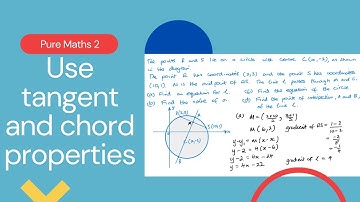 Pure Maths 2
Use
tangent
and chord
properties
The points R and S lie on a circle with centre C (a,-2), as shown
in the diagram.
The point R has coordinates (2,3) and the point S has coordinates
(10,1). M is the mid point of RS. The line l passes through M and C.
(a) Find an equation for l.
(b) Find the value of a.
(c) Find the equation of the circle.
(d) Find the points of intersection, A and B,
of the line l
(a) M = (2+10/2, 3+1/2)
M (6,2)
gradient of RS = 1-3/10-2
= -2/8
= -1/4
y-y₁ = m(x-x₁)
y-2 = 4(x-6)
y-2 = 4x-24
y = 4x-22
gradient of l = 4